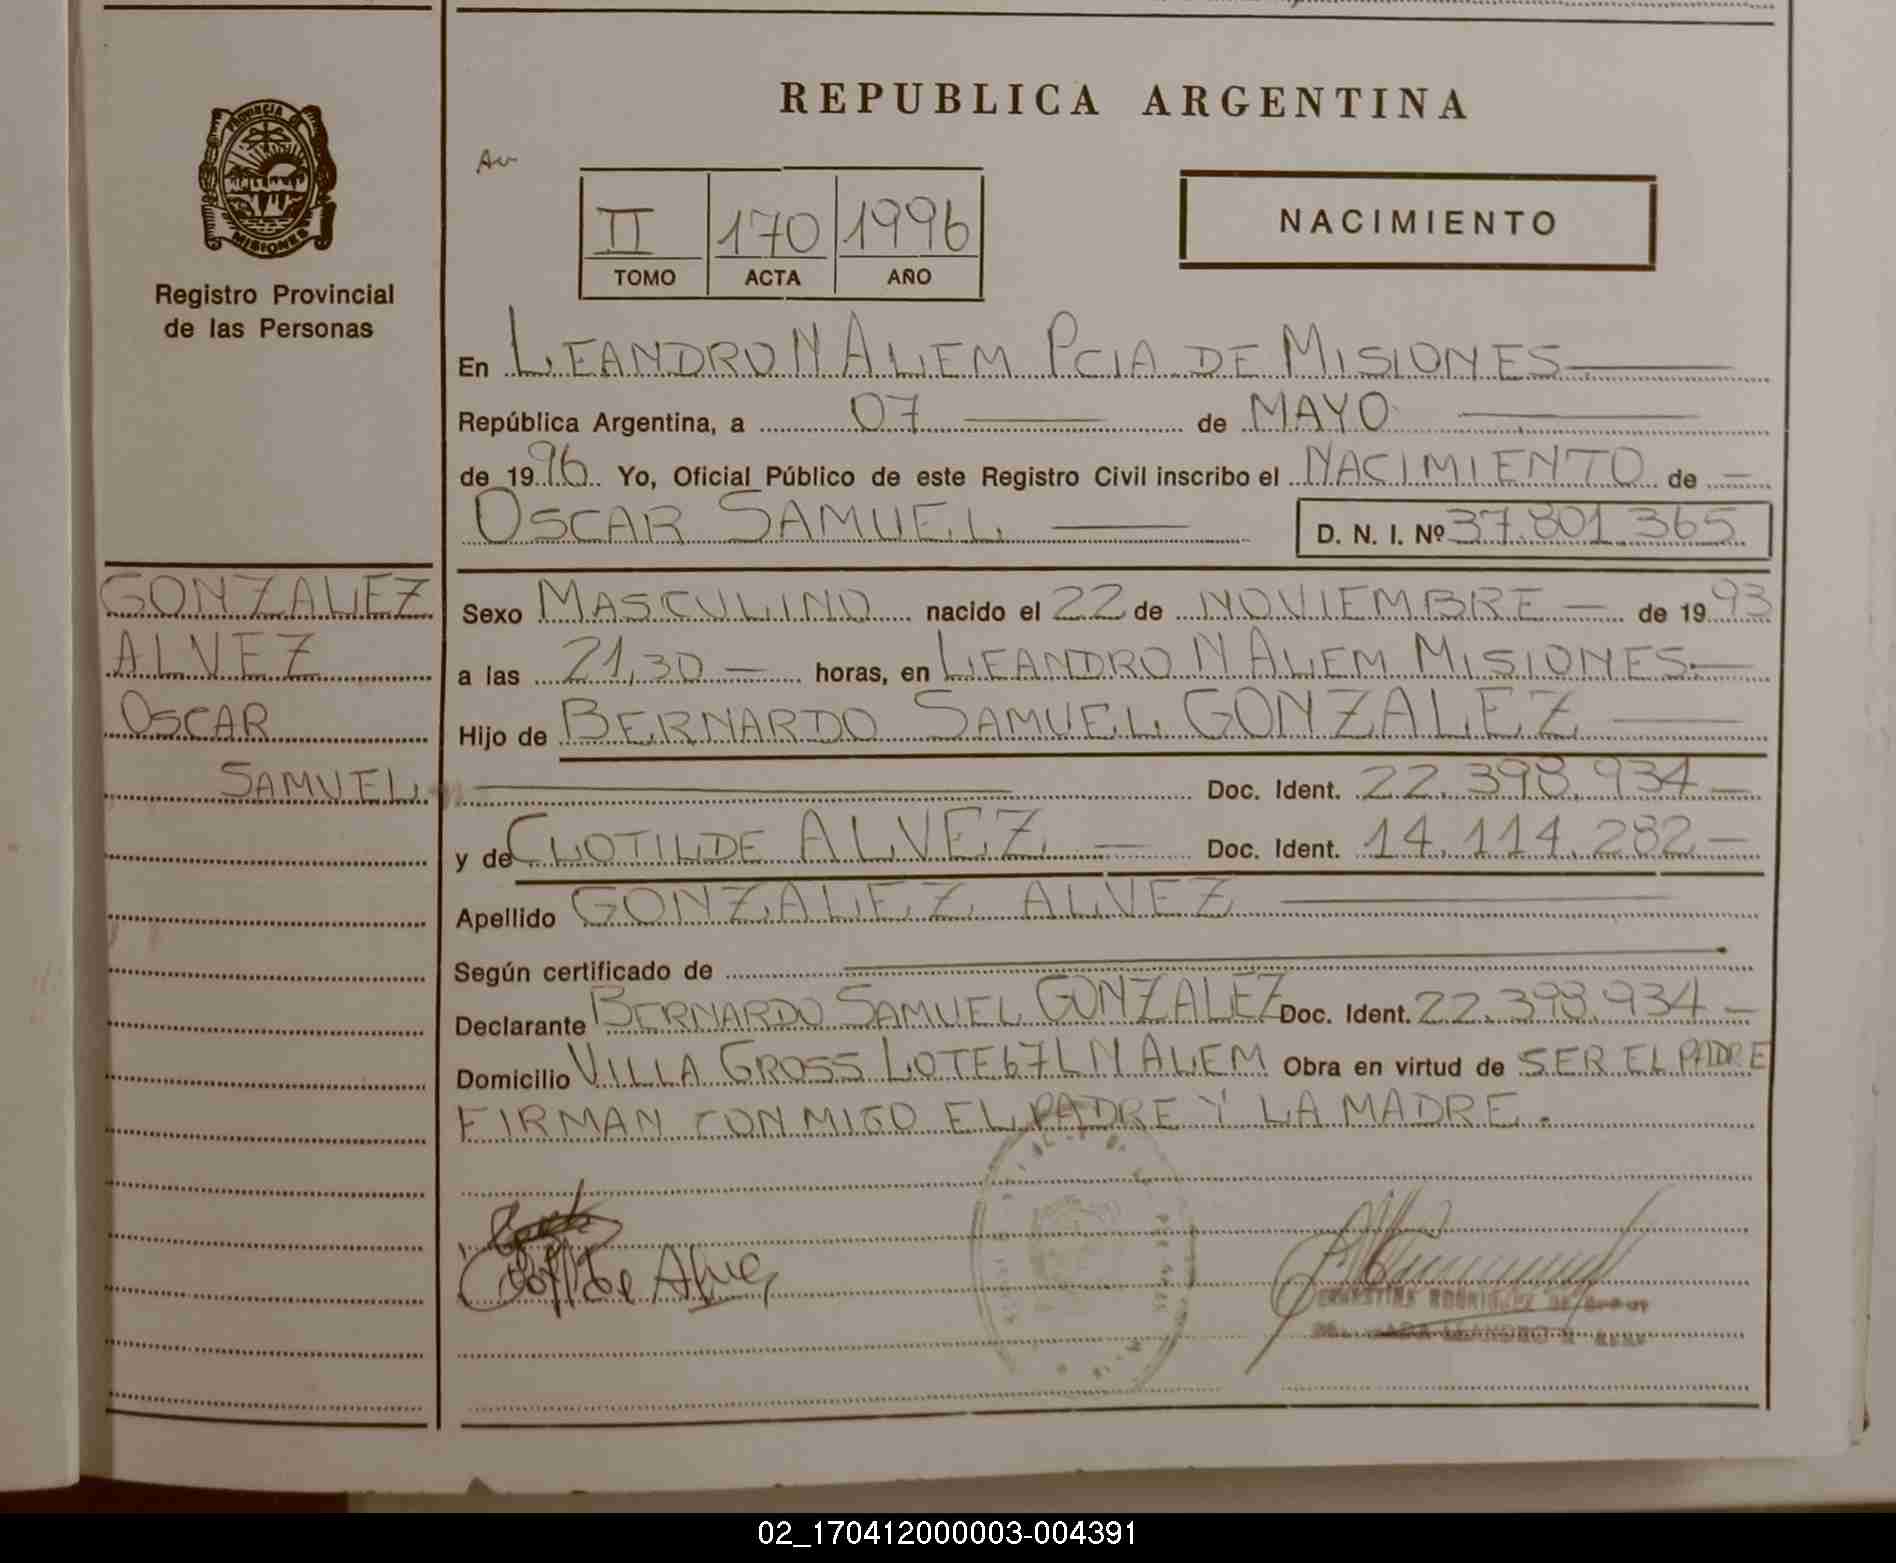 PROVINCIA DE
MISIONES
Registro Provincial
de las Personas
GONZALEZ
ALVEZ
OSCAR
SAMUEL
REPUBLICA ARGENTINA
II 170 1996
TOMO ACTA AÑO
NACIMIENTO
En LEANDRO N ALEM PCIA DE MISIONES
República Argentina, a 07 de MAYO
de 1996 Yo, Oficial Público de este Registro Civil inscribo el NACIMIENTO de
OSCAR SAMUEL D. N. I. Nº 37.801.365
Sexo MASCULINO nacido el 22 de NOVIEMBRE de 1993
a las 21,30 horas, en LEANDRO N ALEM MISIONES
Hijo de BERNARDO SAMUEL GONZALEZ
Doc. Ident. 22.398.934
y de CLOTILDE ALVEZ Doc. Ident. 14.114.282
Apellido GONZALEZ ALVEZ
Según certificado de
Declarante BERNARDO SAMUEL GONZALEZ Doc. Ident. 22.398.934
Domicilio VILLA GROSS LOTE 67 L N ALEM Obra en virtud de SER EL PADRE
FIRMAN CONMIGO EL PADRE Y LA MADRE.
02_170412000003-004391